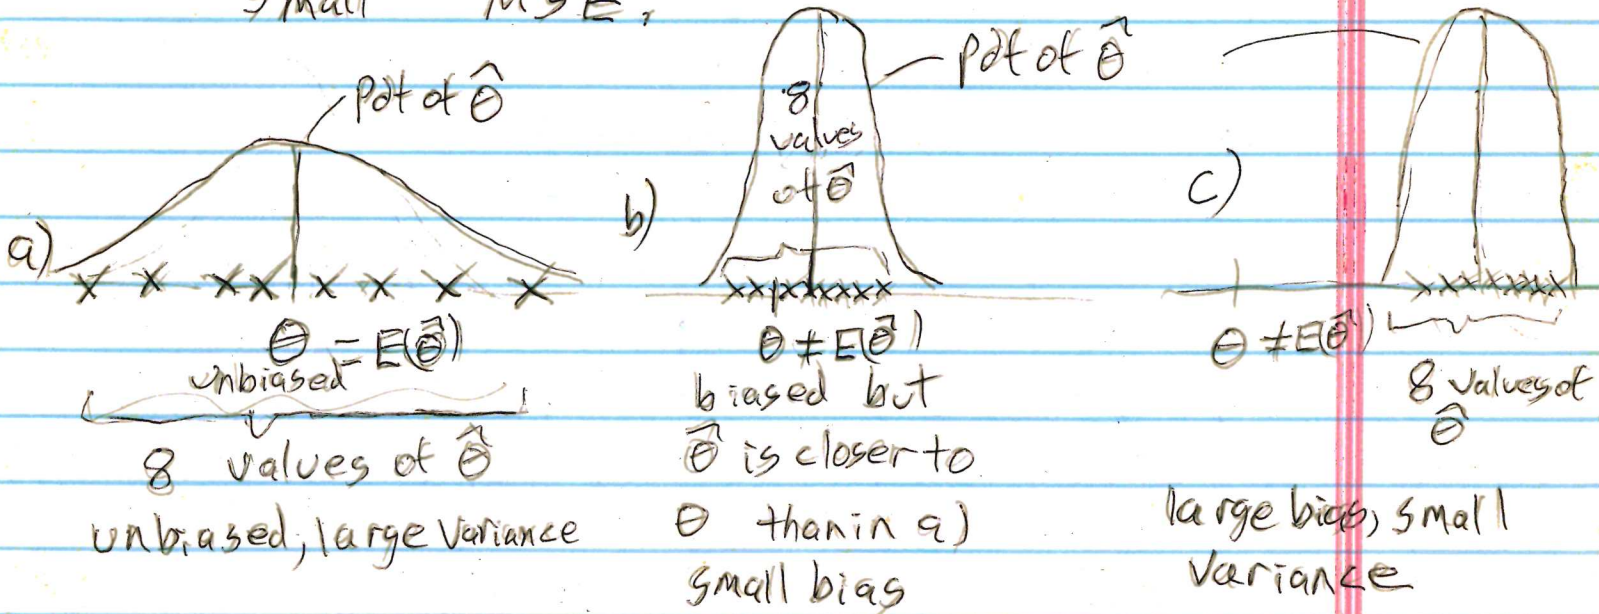 small MSE.
a)
pdf of θ̂
θ = E(θ̂)
unbiased
8 values of θ̂
unbiased, large variance
b)
pdf of θ̂
8
values
of θ̂
θ ≠ E(θ̂)
biased but
θ̂ is closer to
θ than in a)
small bias
c)
θ ≠ E(θ̂)
8 values of
θ̂
large bias, small
variance